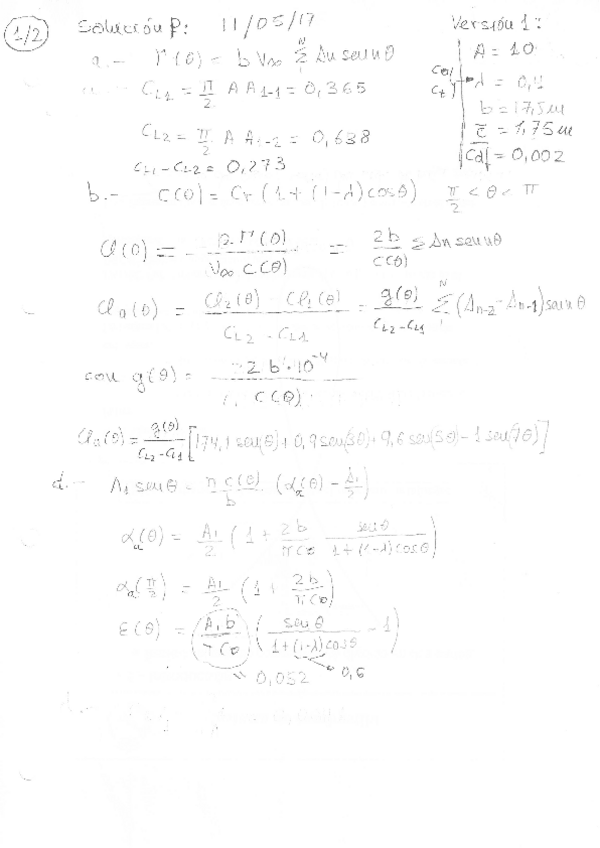 1/2 Solución P: 11/05/17 Versión 1:
a.- Γ(θ) = b V∞ Σ₁ᴺ An sen nθ A = 10
C_L1 = π/2 A A₁₋₁ = 0,365 λ = 0,4
b = 17,5 m
C_L2 = π/2 A A₁₋₂ = 0,638 c̄ = 1,75 m
C_L1 - C_L2 = 0,273 Cd = 0,002
b.- C(θ) = Cr (1 + (1-λ) cosθ) π/2 < θ < π
Cl(θ) = 2Γ(θ) / V∞ C(θ) = 2b / C(θ) Σ An sen nθ
Cl_a(θ) = Cl₂(θ) - Cl₁(θ) / C_L2 - C_L1 = g(θ) / C_L2 - C_L1 Σ₁ᴺ (A_n-2 - A_n-1) sen nθ
con g(θ) = 2 b · 10⁻⁴ / C(θ)
Cl_a(θ) = g(θ) / C_L2 - C_L1 [174,1 sen(θ) + 0,9 sen(3θ) + 9,6 sen(5θ) - 1 sen(7θ)]
d.- A₁ sen θ = π c(θ) / b (α_a(θ) - A₁/2)
α_a(θ) = A₁/2 (1 + 2b / πC₀ senθ / 1 + (1-λ) cosθ)
α_a(π/2) = A₁/2 (1 + 2b / πC₀)
ε(θ) = A₁b / πC₀ (sen θ / 1 + (1-λ) cosθ - 1)
= 0,052 0,6